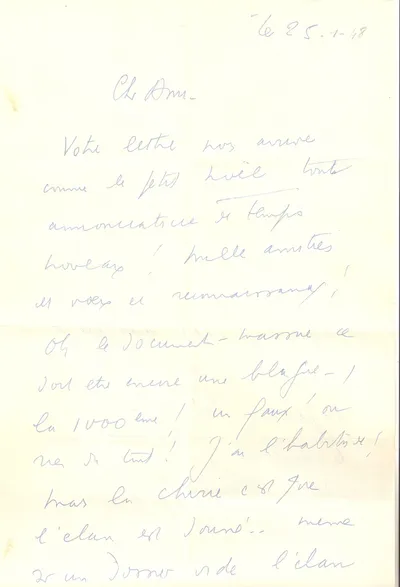 le 25.1.48
Cher Ami -
Votre lettre nous arrive
comme le petit Noël toute
annonciatrice de temps
nouveaux ! mille amitiés
et voeux et reconnaissance !
Oh le document - ce
doit être encore une blague - !
la 1000 ème ! un faux ! ou
rien du tout ! J'ai l'habitude !
mais la chérie c'est que
l'élan est donné.. même
un Dossier vide l'élan